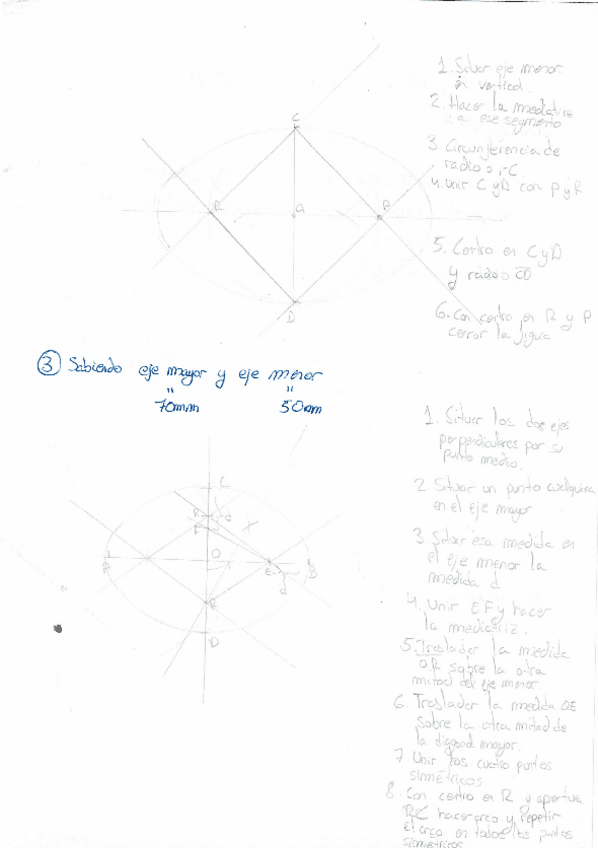 1. Situar eje menor
en vertical.
2. Hacer la mediatriz
a ese segmento
3. Circunferencia de
radio O-C
4. Unir C y D con P y R
5. Centro en C y D
y radio CD
6. Con centro en R y P
cerrar la figura
C
R
O
P
D
③ Sabiendo eje mayor y eje menor
" "
70mm 50mm
1. Situar los dos ejes
perpendiculares por su
punto medio.
2. Situar un punto cualquiera
en el eje mayor
3. Situar esa medida en
el eje menor la
medida d
4. Unir EF y hacer
la mediatriz.
5. Trasladar la medida
OR sobre la otra
mitad del eje menor.
6. Trasladar la medida OE
sobre la otra mitad de
la diagonal mayor.
7. Unir los cuatro puntos
simétricos
8. Con centro en R y apertura
RC hacer arco y repetir
el arco en todos los puntos
simétricos
C
R
d
F
O
A
E
B
d
R
D